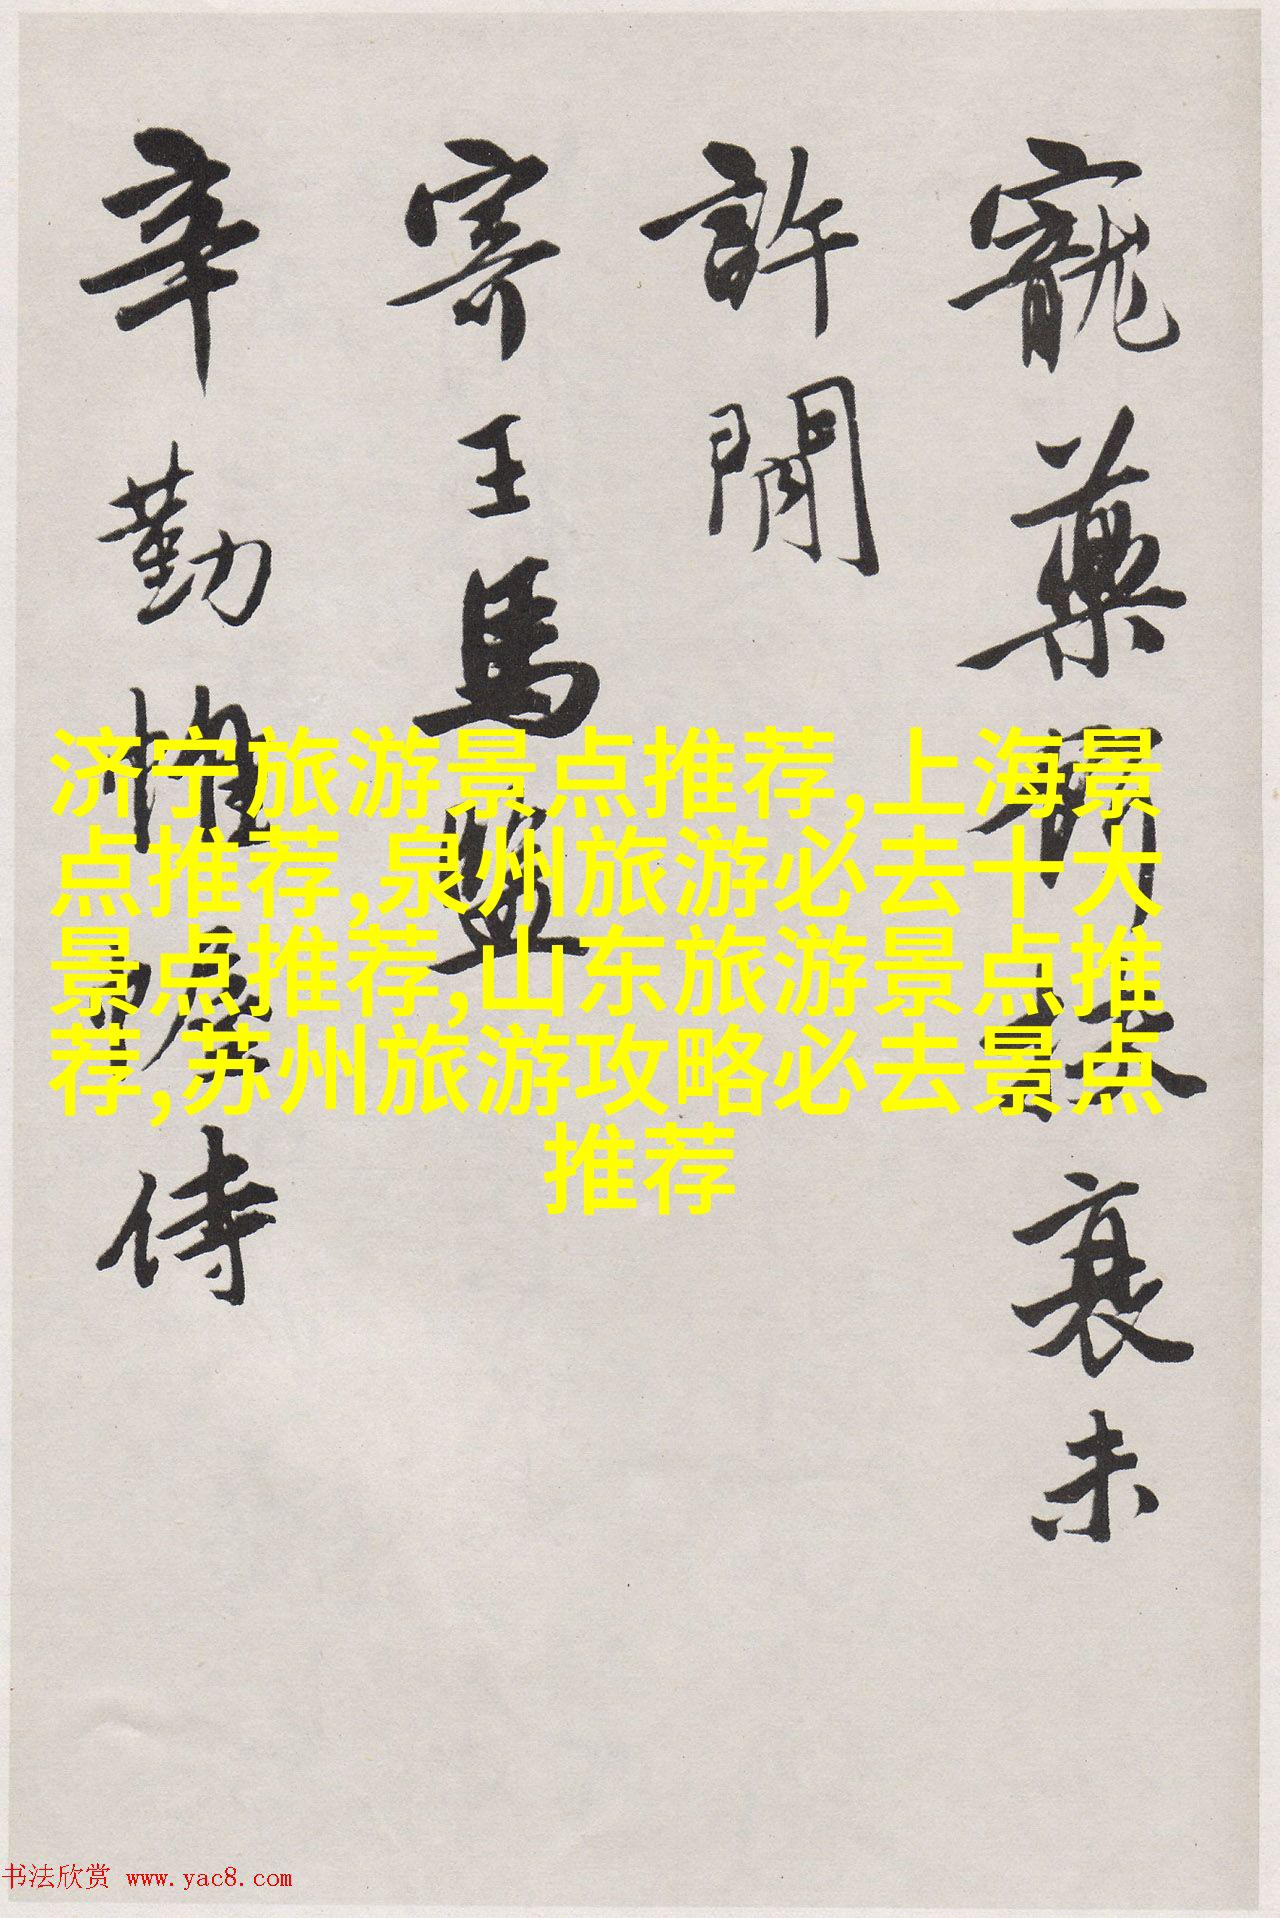 寵藥衰未
許閒
寄王馬監
辛勤帷幄侍
济宁旅游景点推荐,上海景
点推荐,泉州旅游必去十大
景点推荐,山东旅游景点推
荐,苏州旅游攻略必去景点
推荐
书法欣赏 www.yac8.com